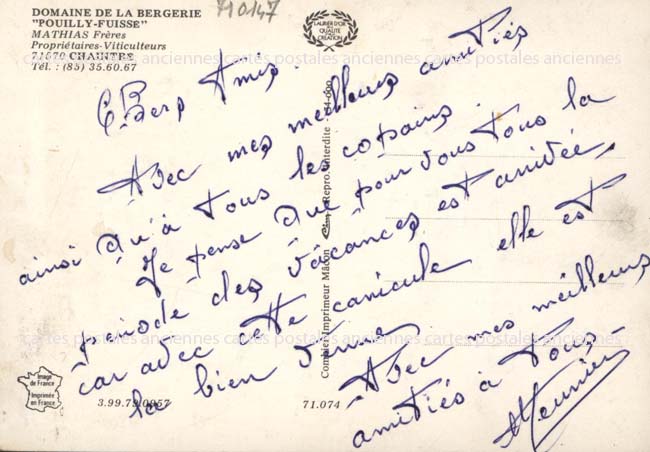 DOMAINE DE LA BERGERIE
"POUILLY-FUISSE"
MATHIAS Frères
Propriétaires-Viticulteurs
71570 CHAINTRE
Tél. : (85) 35.60.67
710147
LAURIER D'OR
DE LA
QUALITÉ
CRÉATION
cartes postales anciennes cartes postales anciennes cartes postales anciennes
Chers Amis.
Avec mes meilleures amitiés
ainsi qu'à tous les copains.
Je pense que pour vous tous la
période des vacances est arrivée,
car avec cette canicule elle est
la bien venue
Avec mes meilleures
amitiés à Tous -
Meunier
cartes postales anciennes cartes postales anciennes cartes postales anciennes
Combier Imprimeur Mâcon
Repro. interdite
Image
de France
Imprimée
en France
3.99.79.0957
71.074